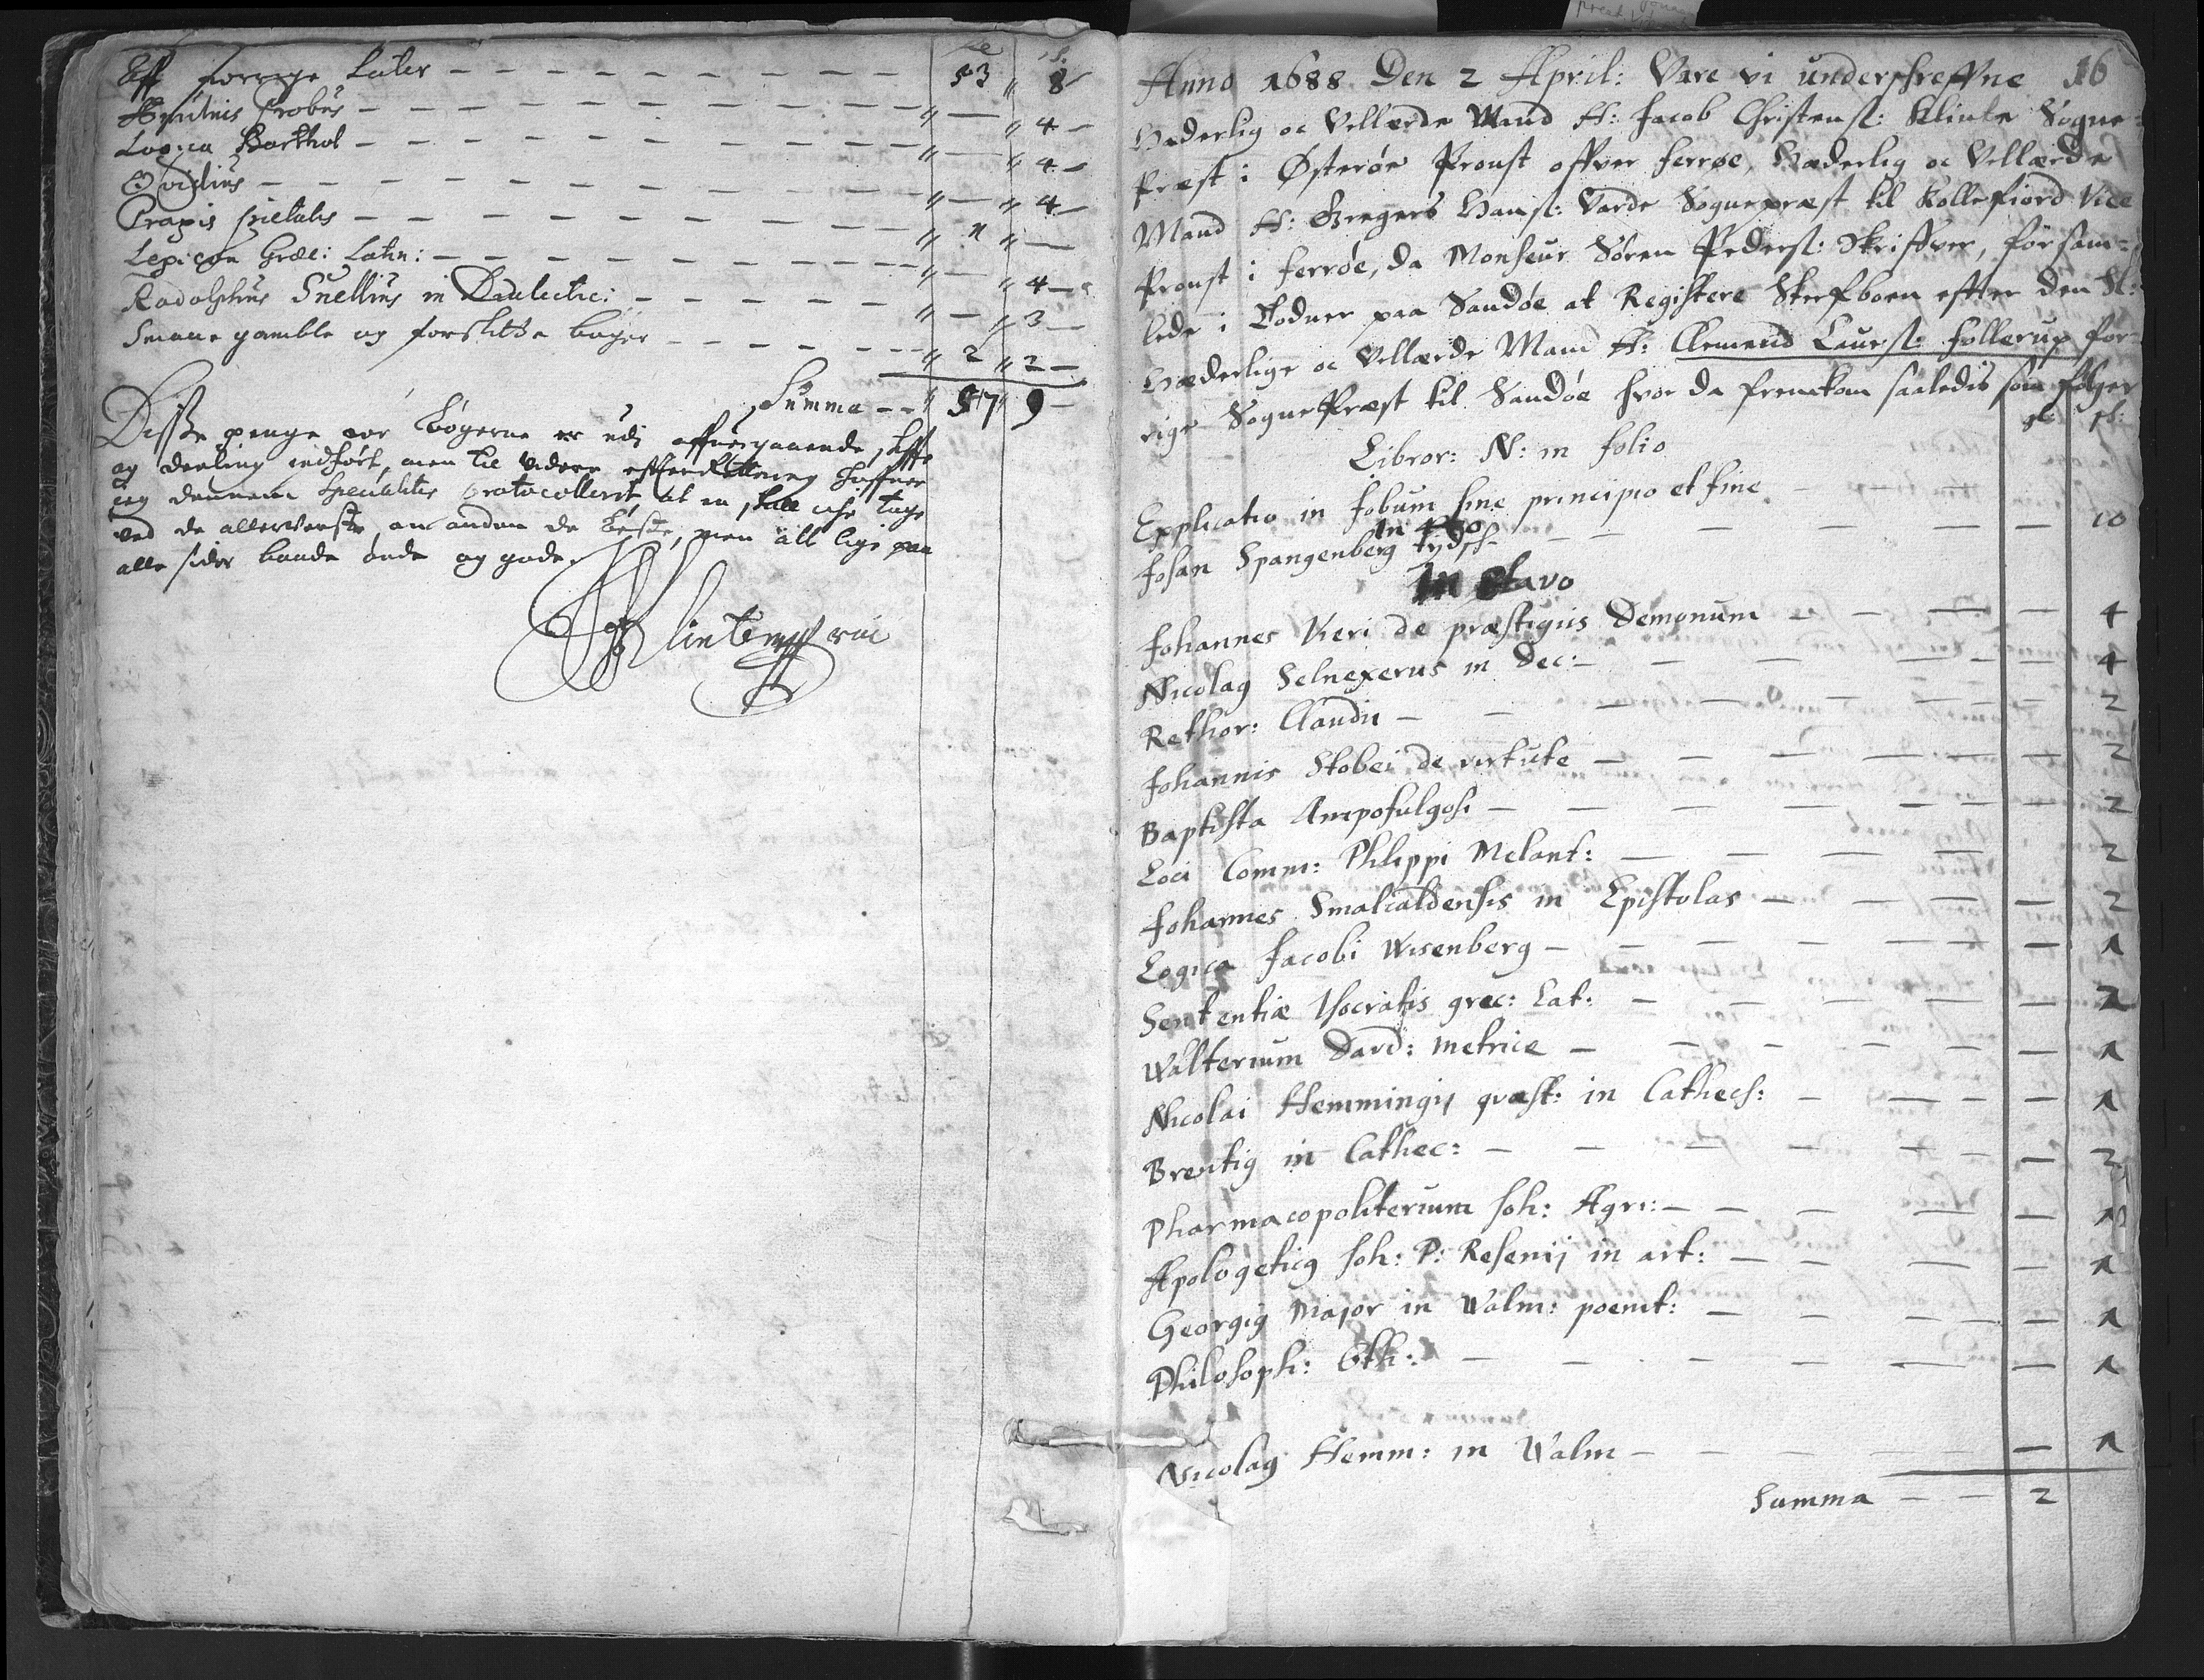 Aff forrige Later — — — — — — — — 53 " 8
Æmilius Probus — — — — — — — — " — " 4 —
Logica Barthol — — — — — — — — " — " 4 —
Ovidius — — — — — — — — " — " 4 —
Praxis pietatis — — — — — — — " 1 " —
Lexicon Græc: Latin: — — — — — — — " — " 4 —
Rodolphus Snellius in Dialectic: — — — — — " — " 3 —
Smaae gamble og forslitte bøger — — — — — " 2 " 2 —
Summa — — " 57 " 9 —
Disse penge for Bøgerne er udi offuergaaende skiffte
og deeling indført, men til videre effterRetning haffuer
jeg dennem Specialiter protocollerit at en skall iche tage
ved de allerverste en anden de beste, men alt lige paa
alle sider baade onde og gode.
Anno 1688 Den 2 April: Vare vi underschreffne 16
Hæderlig oc Vellærde Mand H: Jacob Christens: Klinte Sogne-
Præst i Østerøe Proust offver Ferrøe, Hæderlig oc Vellærde
Mand H: Gregers Hans: Varde Sognepræst til Kollefiord Vice
Proust i Ferrøe, da Monseur Søren Peders: Skriffver, forsam-
lede i Todnes paa Sandøe at Registere Sterfboen effter den Sl:
Hæderlige oc Vellærde Mand H: Clemend Laurs: Follerup for-
rige SognePræst til Sandøe hvor da fremkom saaledis som følger
gl: sk:
Libror: N: in folio
Explicatio in Jobum sine principio et fine — — —
In 4to
Johan Spangenberg tydsk — — — — — — 10
In octavo
Johannes Vieri de præstigiis Demonum — — — — 4
Nicolaus Selnexerus in Dec: — — — — — — 4
Rethor: Claudii — — — — — — — 2
Johannis Stobei de virtute — — — — — — 2
Baptista Ampofulgosi — — — — — — — 2
Loci Comm: Philippi Melant: — — — — 2
Johannes Smalcaldensis in Epistolas — — — — 2
Logica Jacobi Wisenberg — — — — — — 1
Sententiæ Isocratis græc: Lat: — — — — — 2
Walterium David: metrice — — — — — — 1
Nicolai Hemmingij qvæst: in Cathecs: — — — — 1
Brentig in Cathec: — — — — — — — 2
Pharmacopoliterium Joh: Agri: — — — — — 1
Apologeticg Joh: P: Resenij in art: — — — — 1
Georgig Major in Walm: poemt: — — — — — 1
Philosoph: Eth: — — — — — — 1
Nicolag Hemm: in Walm — — — — — — 1
Summa — — 2